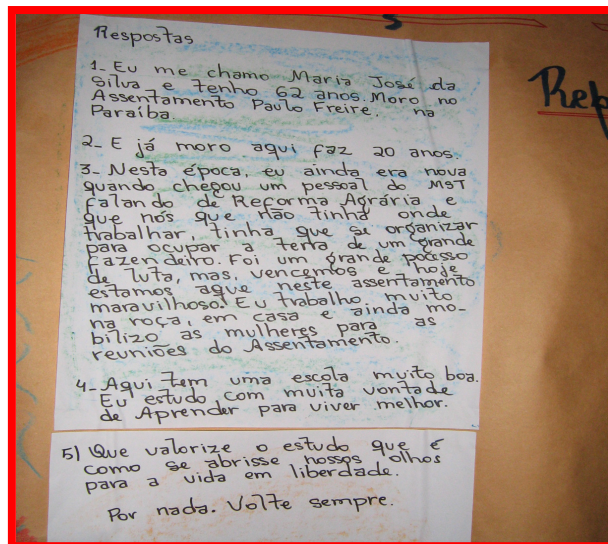 Respostas
1- Eu me chamo Maria José da
Silva e tenho 62 anos. Moro no
Assentamento Paulo Freire, na
Paraíba.
2- E já moro aqui faz 20 anos.
3- Nesta época, eu ainda era nova
quando chegou um pessoal do MST
falando de Reforma Agrária e
que nós que não tinha onde
trabalhar, tinha que se organizar
para ocupar a terra de um grande
fazendeiro. Foi um grande pocesso
de luta, mas, vencemos e hoje
estamos aque neste assentamento
maravilhoso! Eu trabalho muito
na roça, em casa e ainda mo-
bilizo as mulheres para as
reuniões do Assentamento.
4- Aqui tem uma escola muito boa.
Eu estudo com muita vontade
de Aprender para viver melhor.
5) Que valorize o estudo que é
como se abrisse nossos olhos
para a vida em liberdade.
Por nada. Volte sempre.